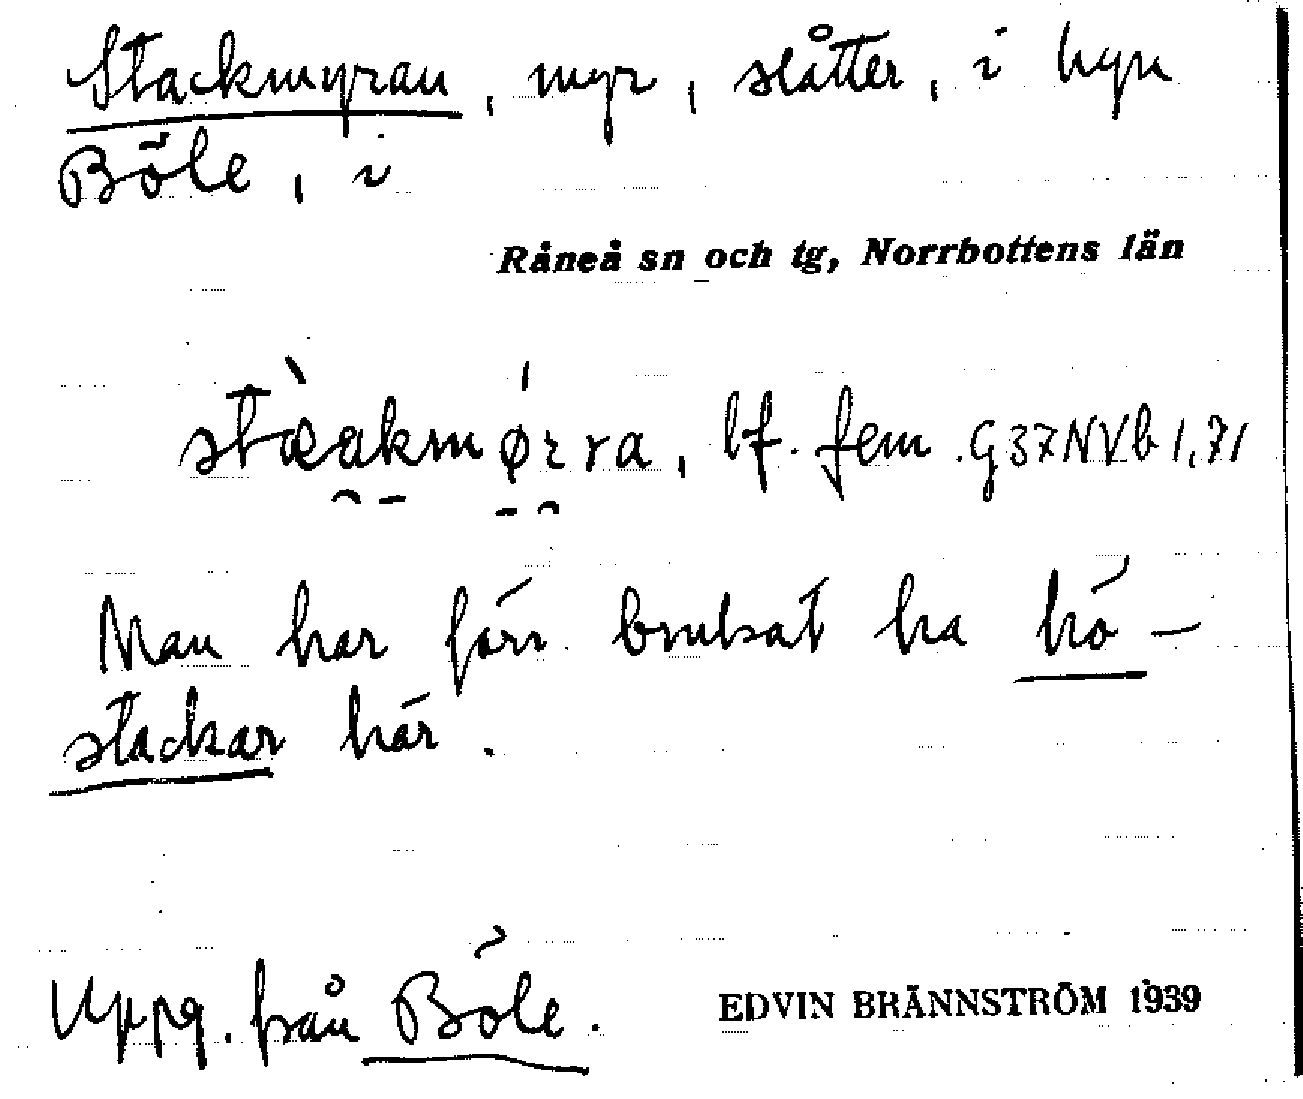 Stackmyran, myr, slåtter, i byn
Böle, i
Råneå sn och tg, Norrbottens län
stæakmørra, bf. fem. G37NVb 1,71
Man har förr brukat ha hö-
stackar här.
Uppg. från Böle.
EDVIN BRÄNNSTRÖM 1939